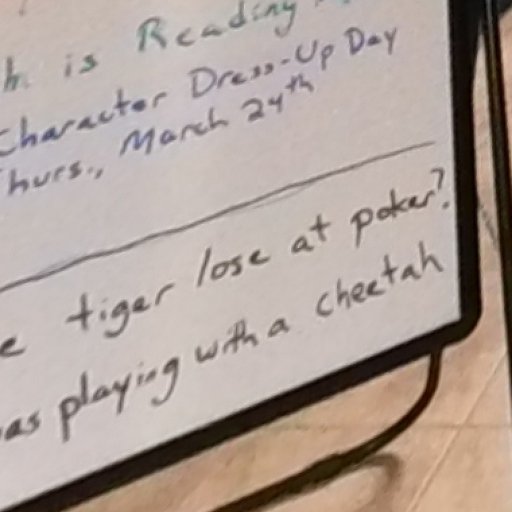 h is Reading
Character Dress-Up Day
hurs., March 24th
e tiger lose at poker?
as playing with a cheetah